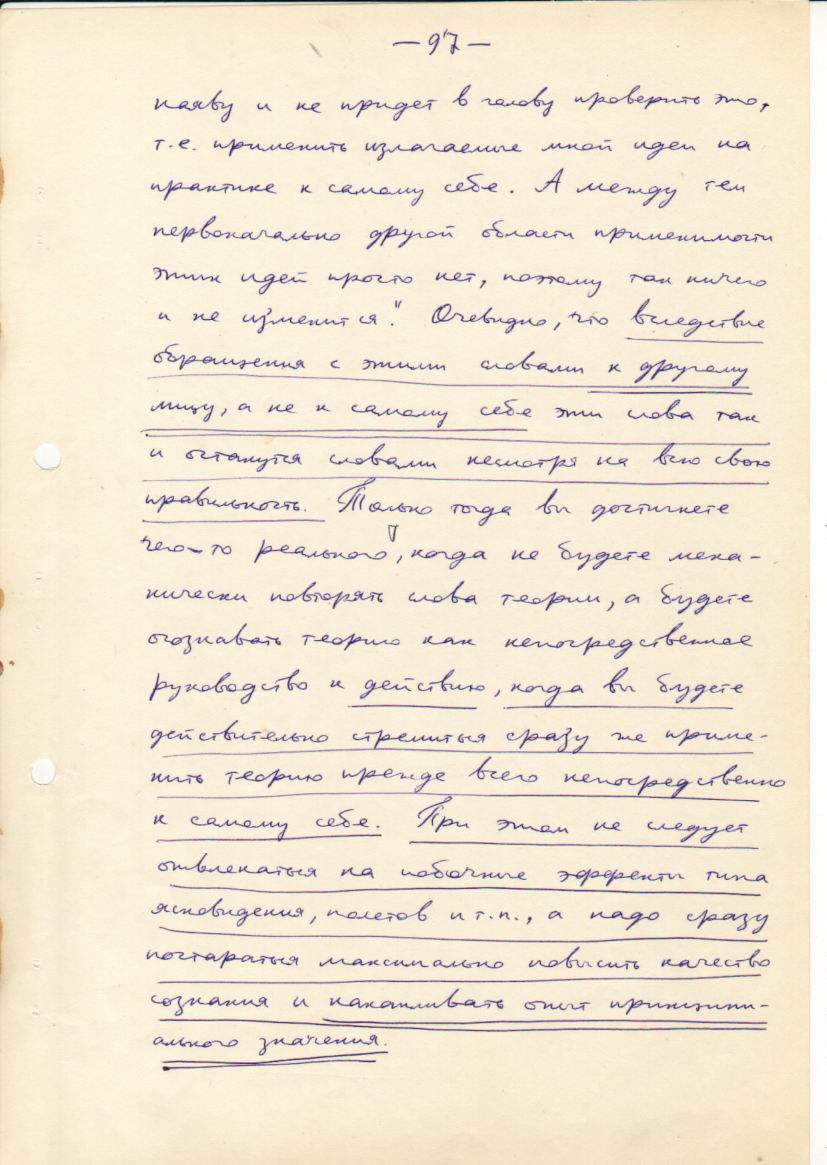 — 97 —
наяву и не придет в голову проверить это,
т.е. применить излагаемые мной идеи на
практике к самому себе. А между тем
первоначально другой области применимости
этих идей просто нет, поэтому так ничего
и не изменится." Очевидно, что вследствие
обращения с этими словами к другому
лицу, а не к самому себе эти слова так
и останутся словами несмотря на всю свою
правильность. Только тогда вы достигнете
чего-то реального, когда не будете меха-
нически повторять слова теории, а будете
осознавать теорию как непосредственное
руководство к действию, когда вы будете
действительно стремиться сразу же приме-
нить теорию прежде всего непосредственно
к самому себе. При этом не следует
отвлекаться на побочные эффекты типа
ясновидения, полетов и т.п., а надо сразу
постараться максимально повысить качество
сознания и накапливать опыт принципи-
ального значения.